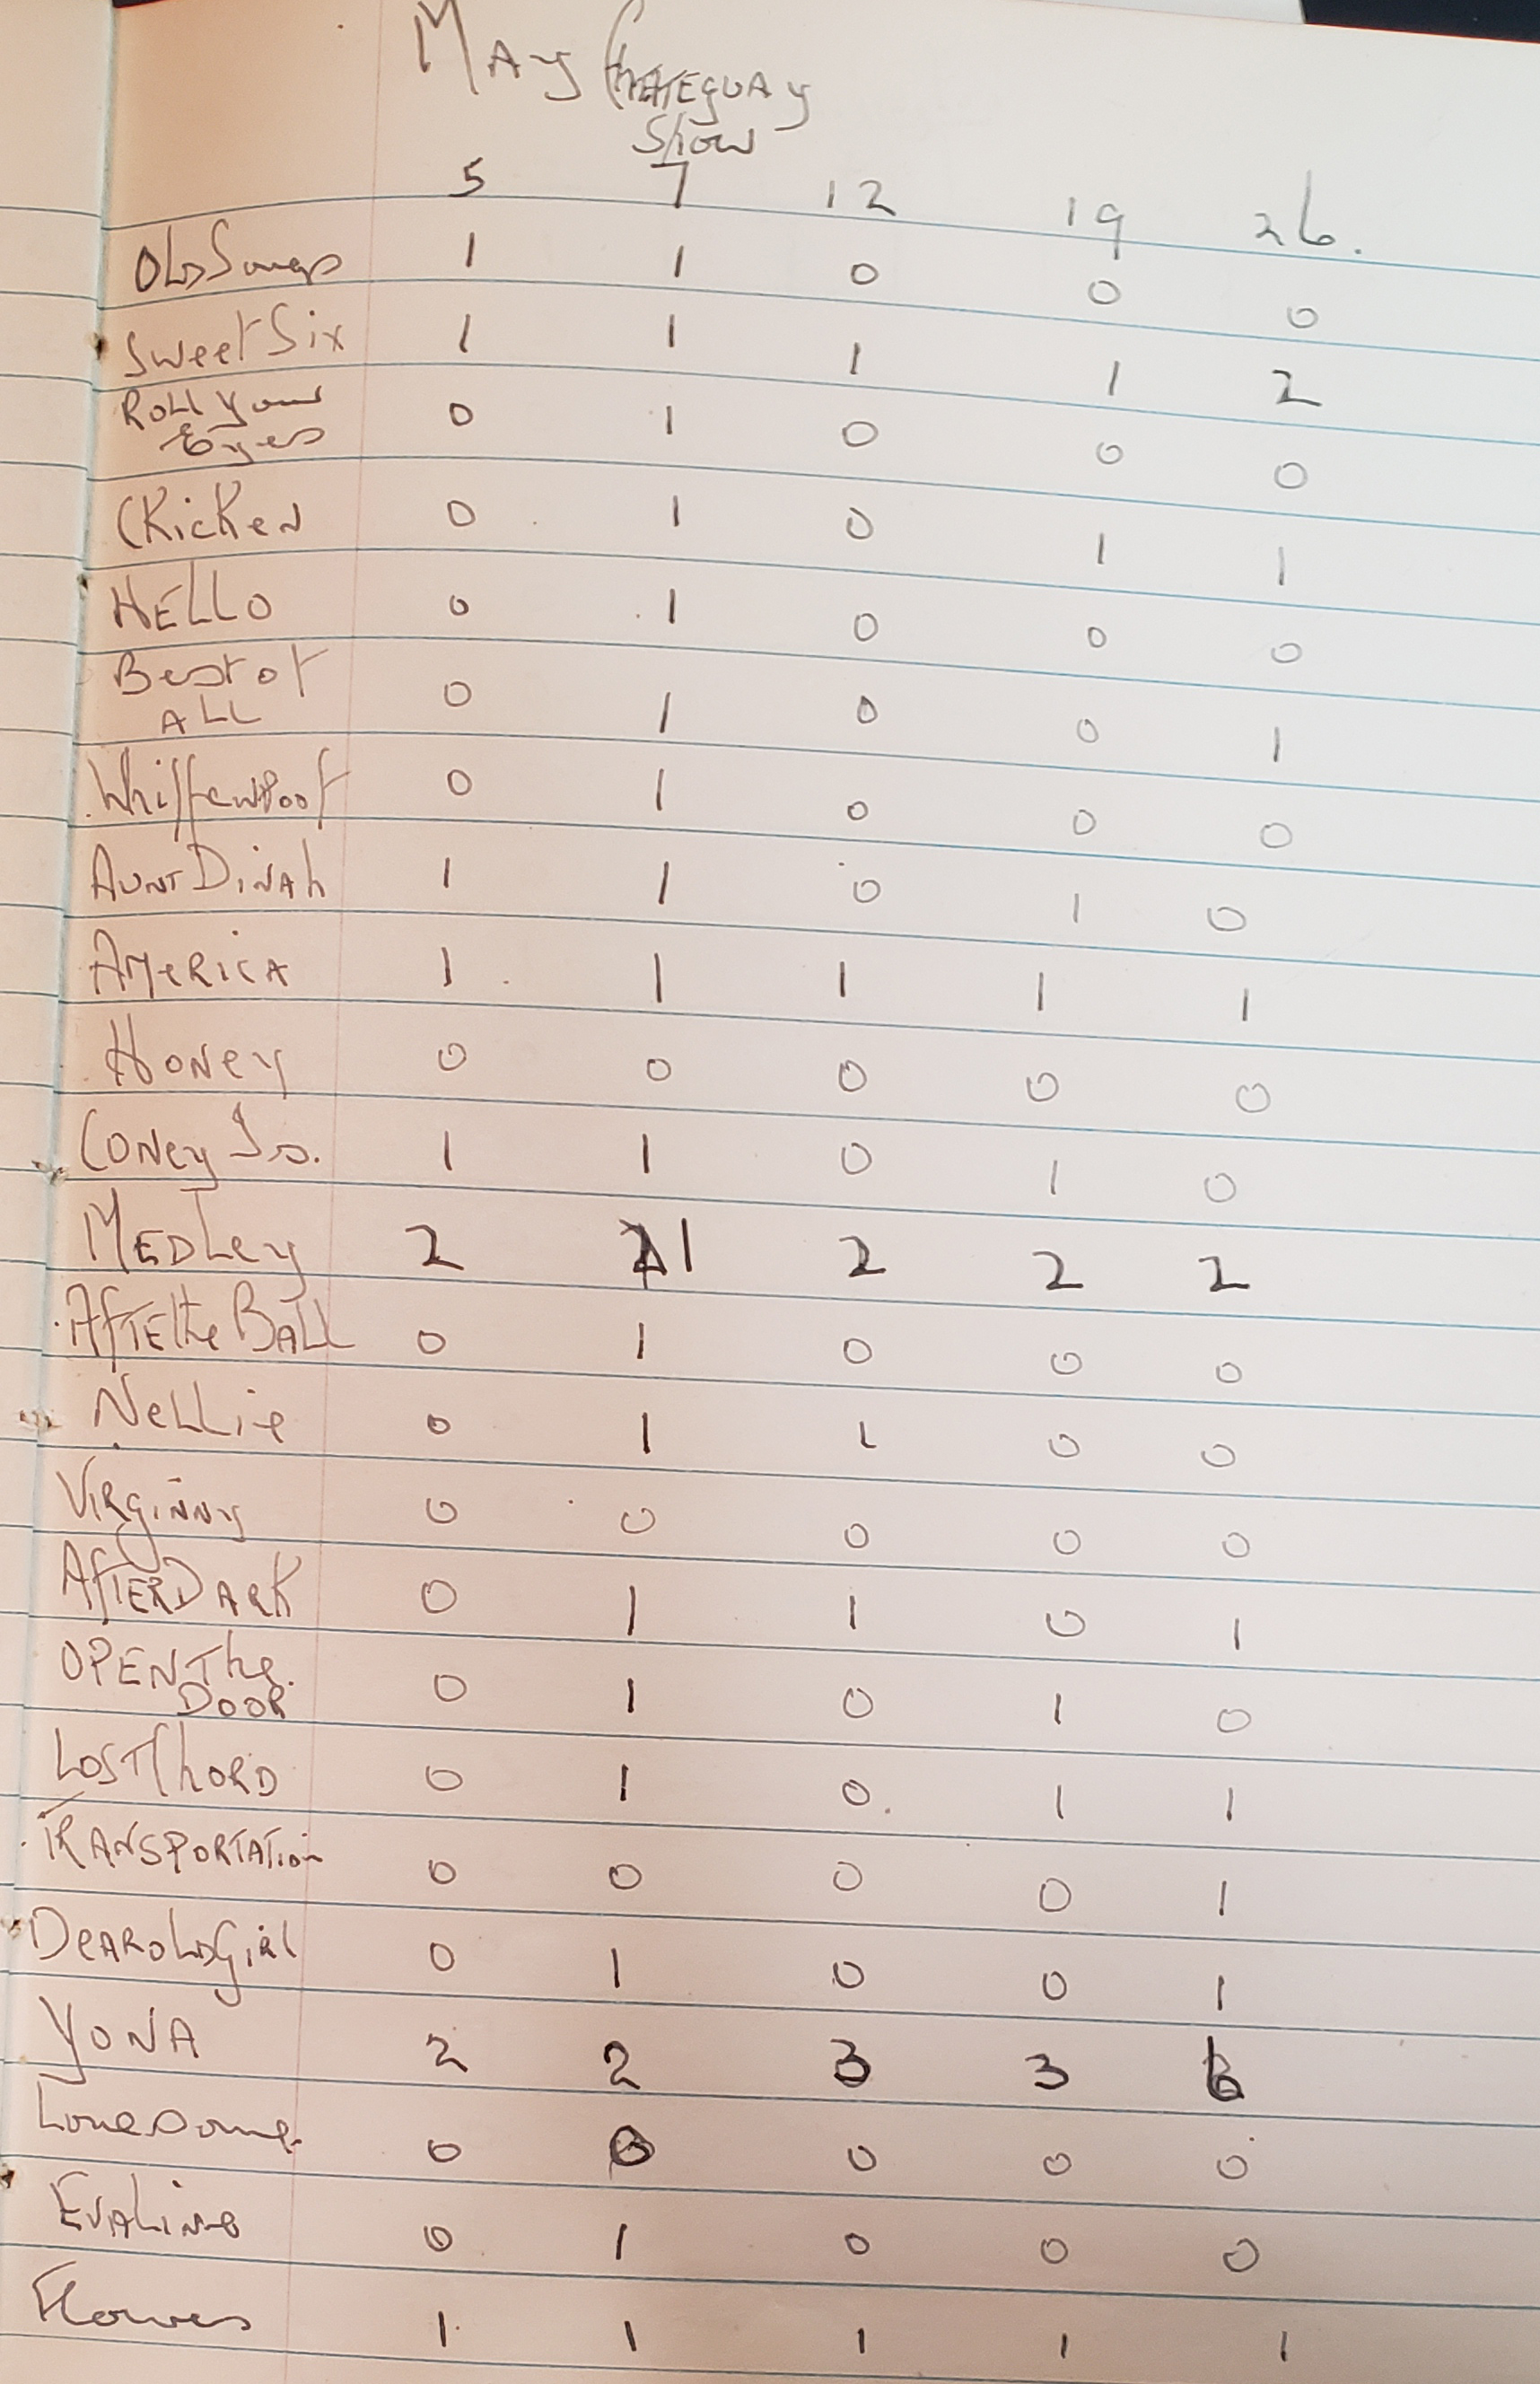 May Chateguay
Show
5 7 12 19 26.
Old Songs 1 1 0 0 0
Sweet Six 1 1 1 1 2
Roll Your
Eyes 0 1 0 0 0
Chicken 0 1 0 1 1
HELLO 0 1 0 0 0
Best of
ALL 0 1 0 0 1
Whiffenpoof 0 1 0 0 0
Aunt Dinah 1 1 0 1 0
America 1 1 1 1 1
Honey 0 0 0 0 0
Coney Is. 1 1 0 1 0
MEDLey 2 1 2 2 2
After the BALL 0 1 0 0 0
NeLLie 0 1 1 0 0
Virginny 0 0 0 0 0
AfterDark 0 1 1 0 1
OPEN The
DOOR 0 1 0 1 0
LOST Chord 0 1 0 1 1
TRANSPORTATION 0 0 0 0 1
Dear Old Girl 0 1 0 0 1
YONA 2 2 3 3
Lonesome 0 0 0 0 0
Evaline 0 1 0 0 0
Flowers 1 1 1 1 1